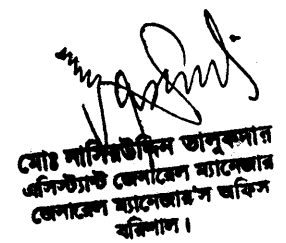 মোঃ নাসিরউদ্দিন তালুকদার
এসিস্ট্যান্ট জেনারেল ম্যানেজার
জেনারেল ম্যানেজার'স অফিস
বরিশাল।